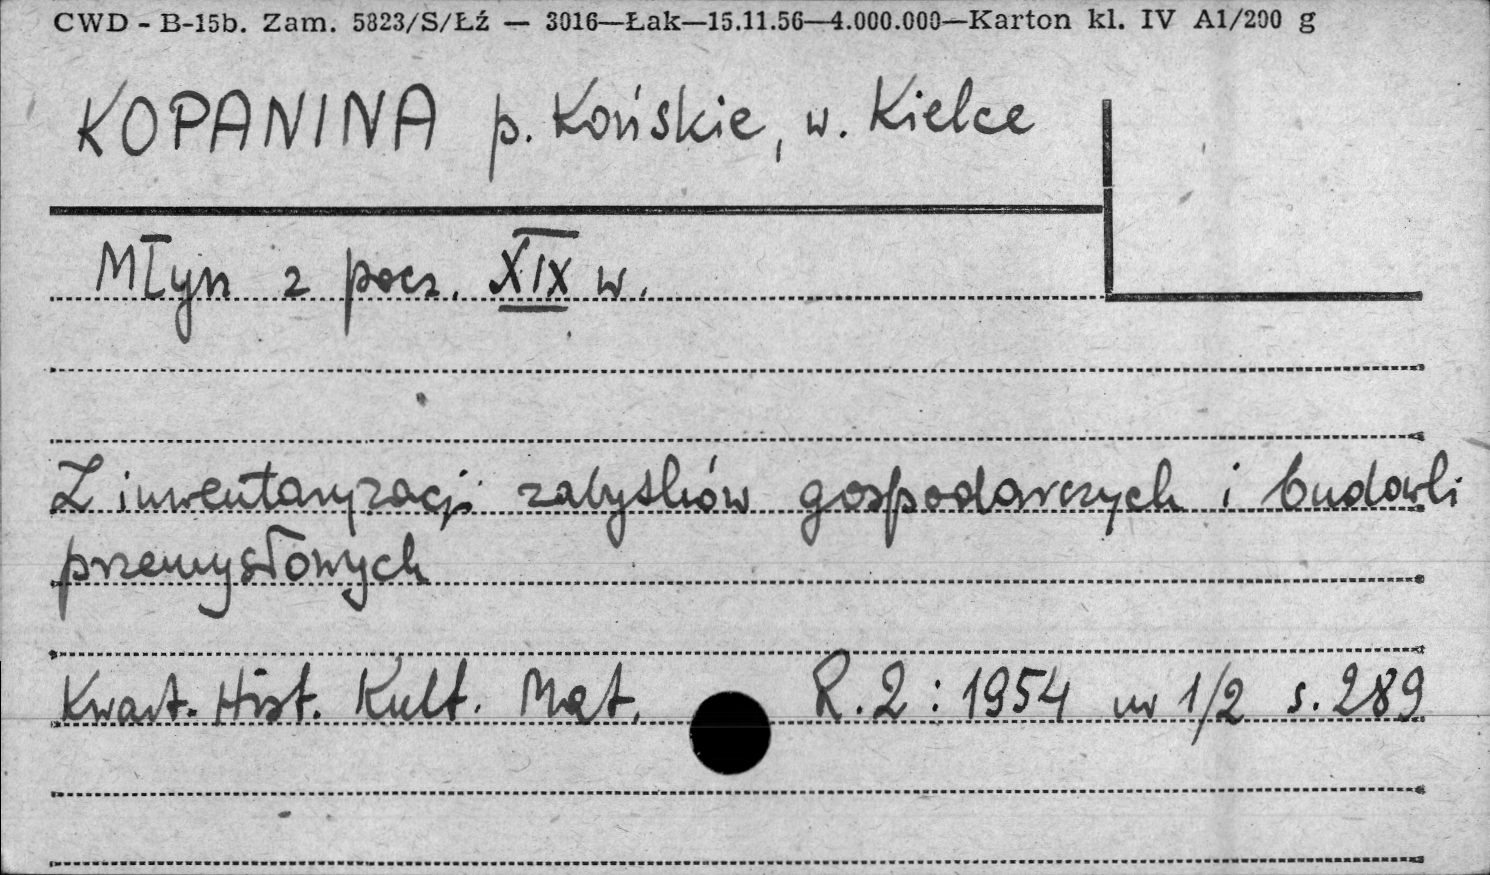 CWD - B-15b. Zam. 5823/S/Łź — 3016—Łak—15.11.56—4.000.000—Karton kl. IV A1/200 g
KOPANINA p. Końskie, w. Kielce
Młyn z pocz. XIX w.
Z inwentaryzacji zabytków gospodarczych i budowli
przemysłowych
Kwart. Hist. Kult. Mat. R. 2 : 1954 nr 1/2 s. 289